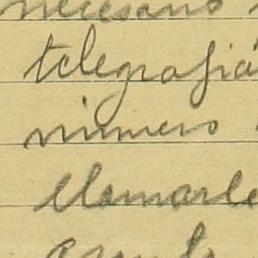 necesario
telegrafiá
número
llamarle